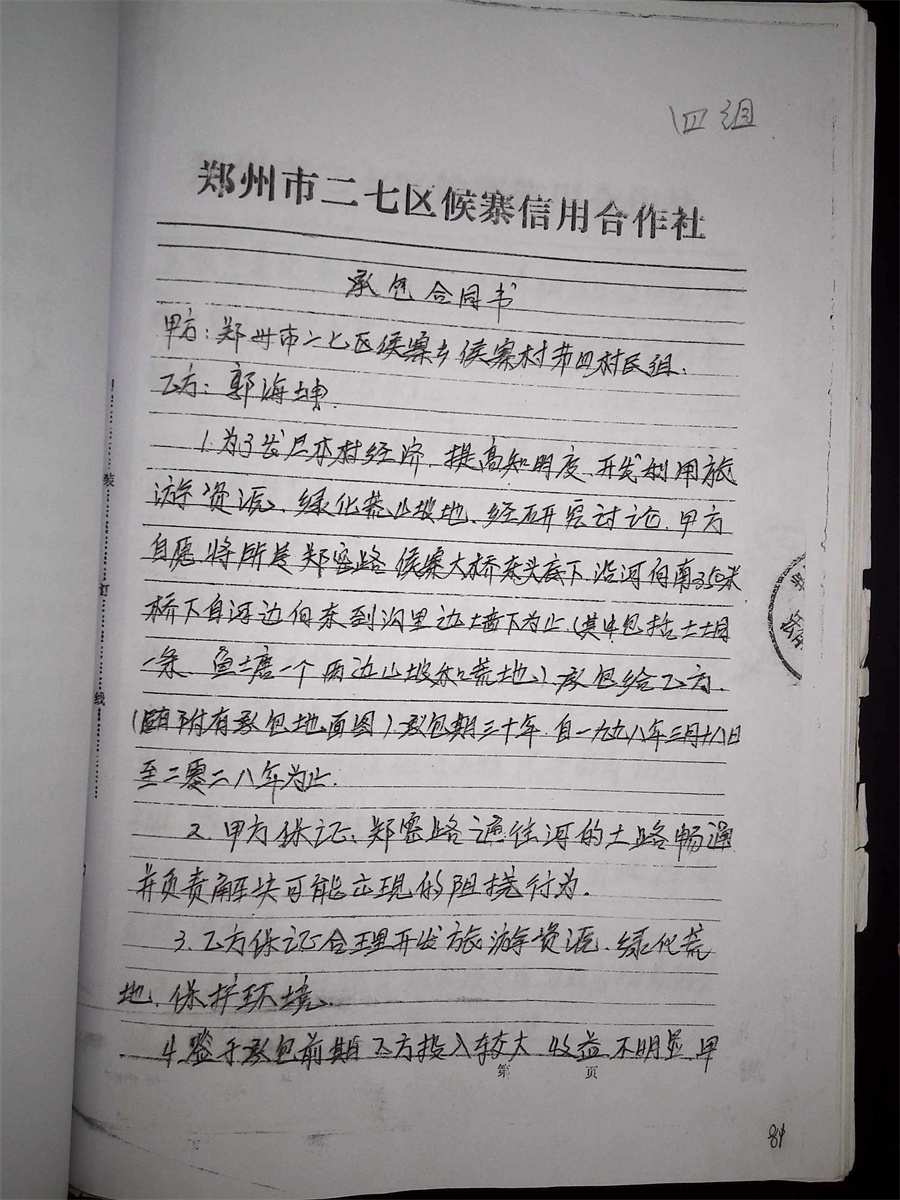 四组
郑州市二七区候寨信用合作社
承包合同书
甲方：郑州市二七区侯寨乡侯寨村第四村民组.
乙方：郭海坤.
1.为了发展本村经济.提高知明度.开发利用旅
游资源、绿化荒山坡地.经研究讨论.甲方
自愿将所是郑密路侯寨大桥东头底下.沿河向南350米
桥下自河边向东到沟里边墙下为止(其中包括土坝
一条.鱼塘一个两边山坡和荒地)承包给乙方.
(下附有承包地面图)承包期三十年.自一九九八年三月十八日
至二零二八年为止.
2.甲方保证、郑密路通往河的土路畅通
并负责解决可能出现的阻挠行为.
3.乙方保证合理开发旅游资源.绿化荒
地.保护环境.
4.鉴于承包前期乙方投入较大 收益不明显.甲
第 页
装
订
线
81